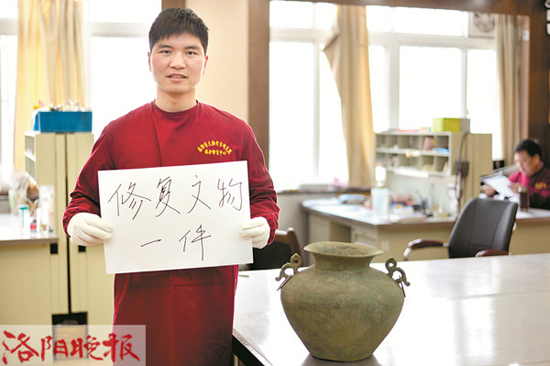 修复文物
一件
洛阳晚报